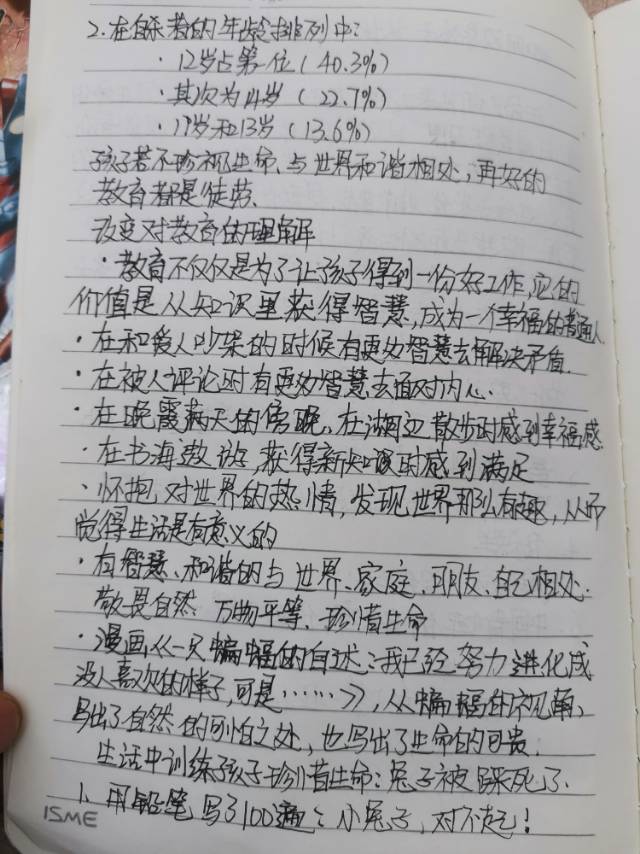 2.在自杀者的年龄排列中:
·12岁占第一位(40.3%)
·其次为14岁(22.7%)
·11岁和13岁(13.6%)
孩子若不珍视生命、与世界和谐相处,再好的
教育都是徒劳.
改变对教育的理解
·教育不仅仅是为了让孩子得到一份好工作,它的
价值是从知识里获得智慧,成为一个幸福的普通人
·在和爱人吵架的时候有更好智慧去解决矛盾.
·在被人评论时有更好智慧去面对内心.
·在晚霞满天的傍晚、在湖边散步时感到幸福感
·在书海遨游 获得新知识时感到满足
·怀抱对世界的热情,发现世界那么有趣,从而
觉得生活是有意义的
·有智慧、和谐的与世界、家庭、朋友、自己相处.
敬畏自然 万物平等、珍惜生命
·漫画《一只蝙蝠的自述:我已经努力进化成
没人喜欢的样子,可是……》,从蝙蝠的视角,
写出了自然的可怕之处,也写出了生命的可贵.
生活中训练孩子珍惜生命:兔子被踩死了.
1、用铅笔写了100遍:小兔子,对不起!
ISME